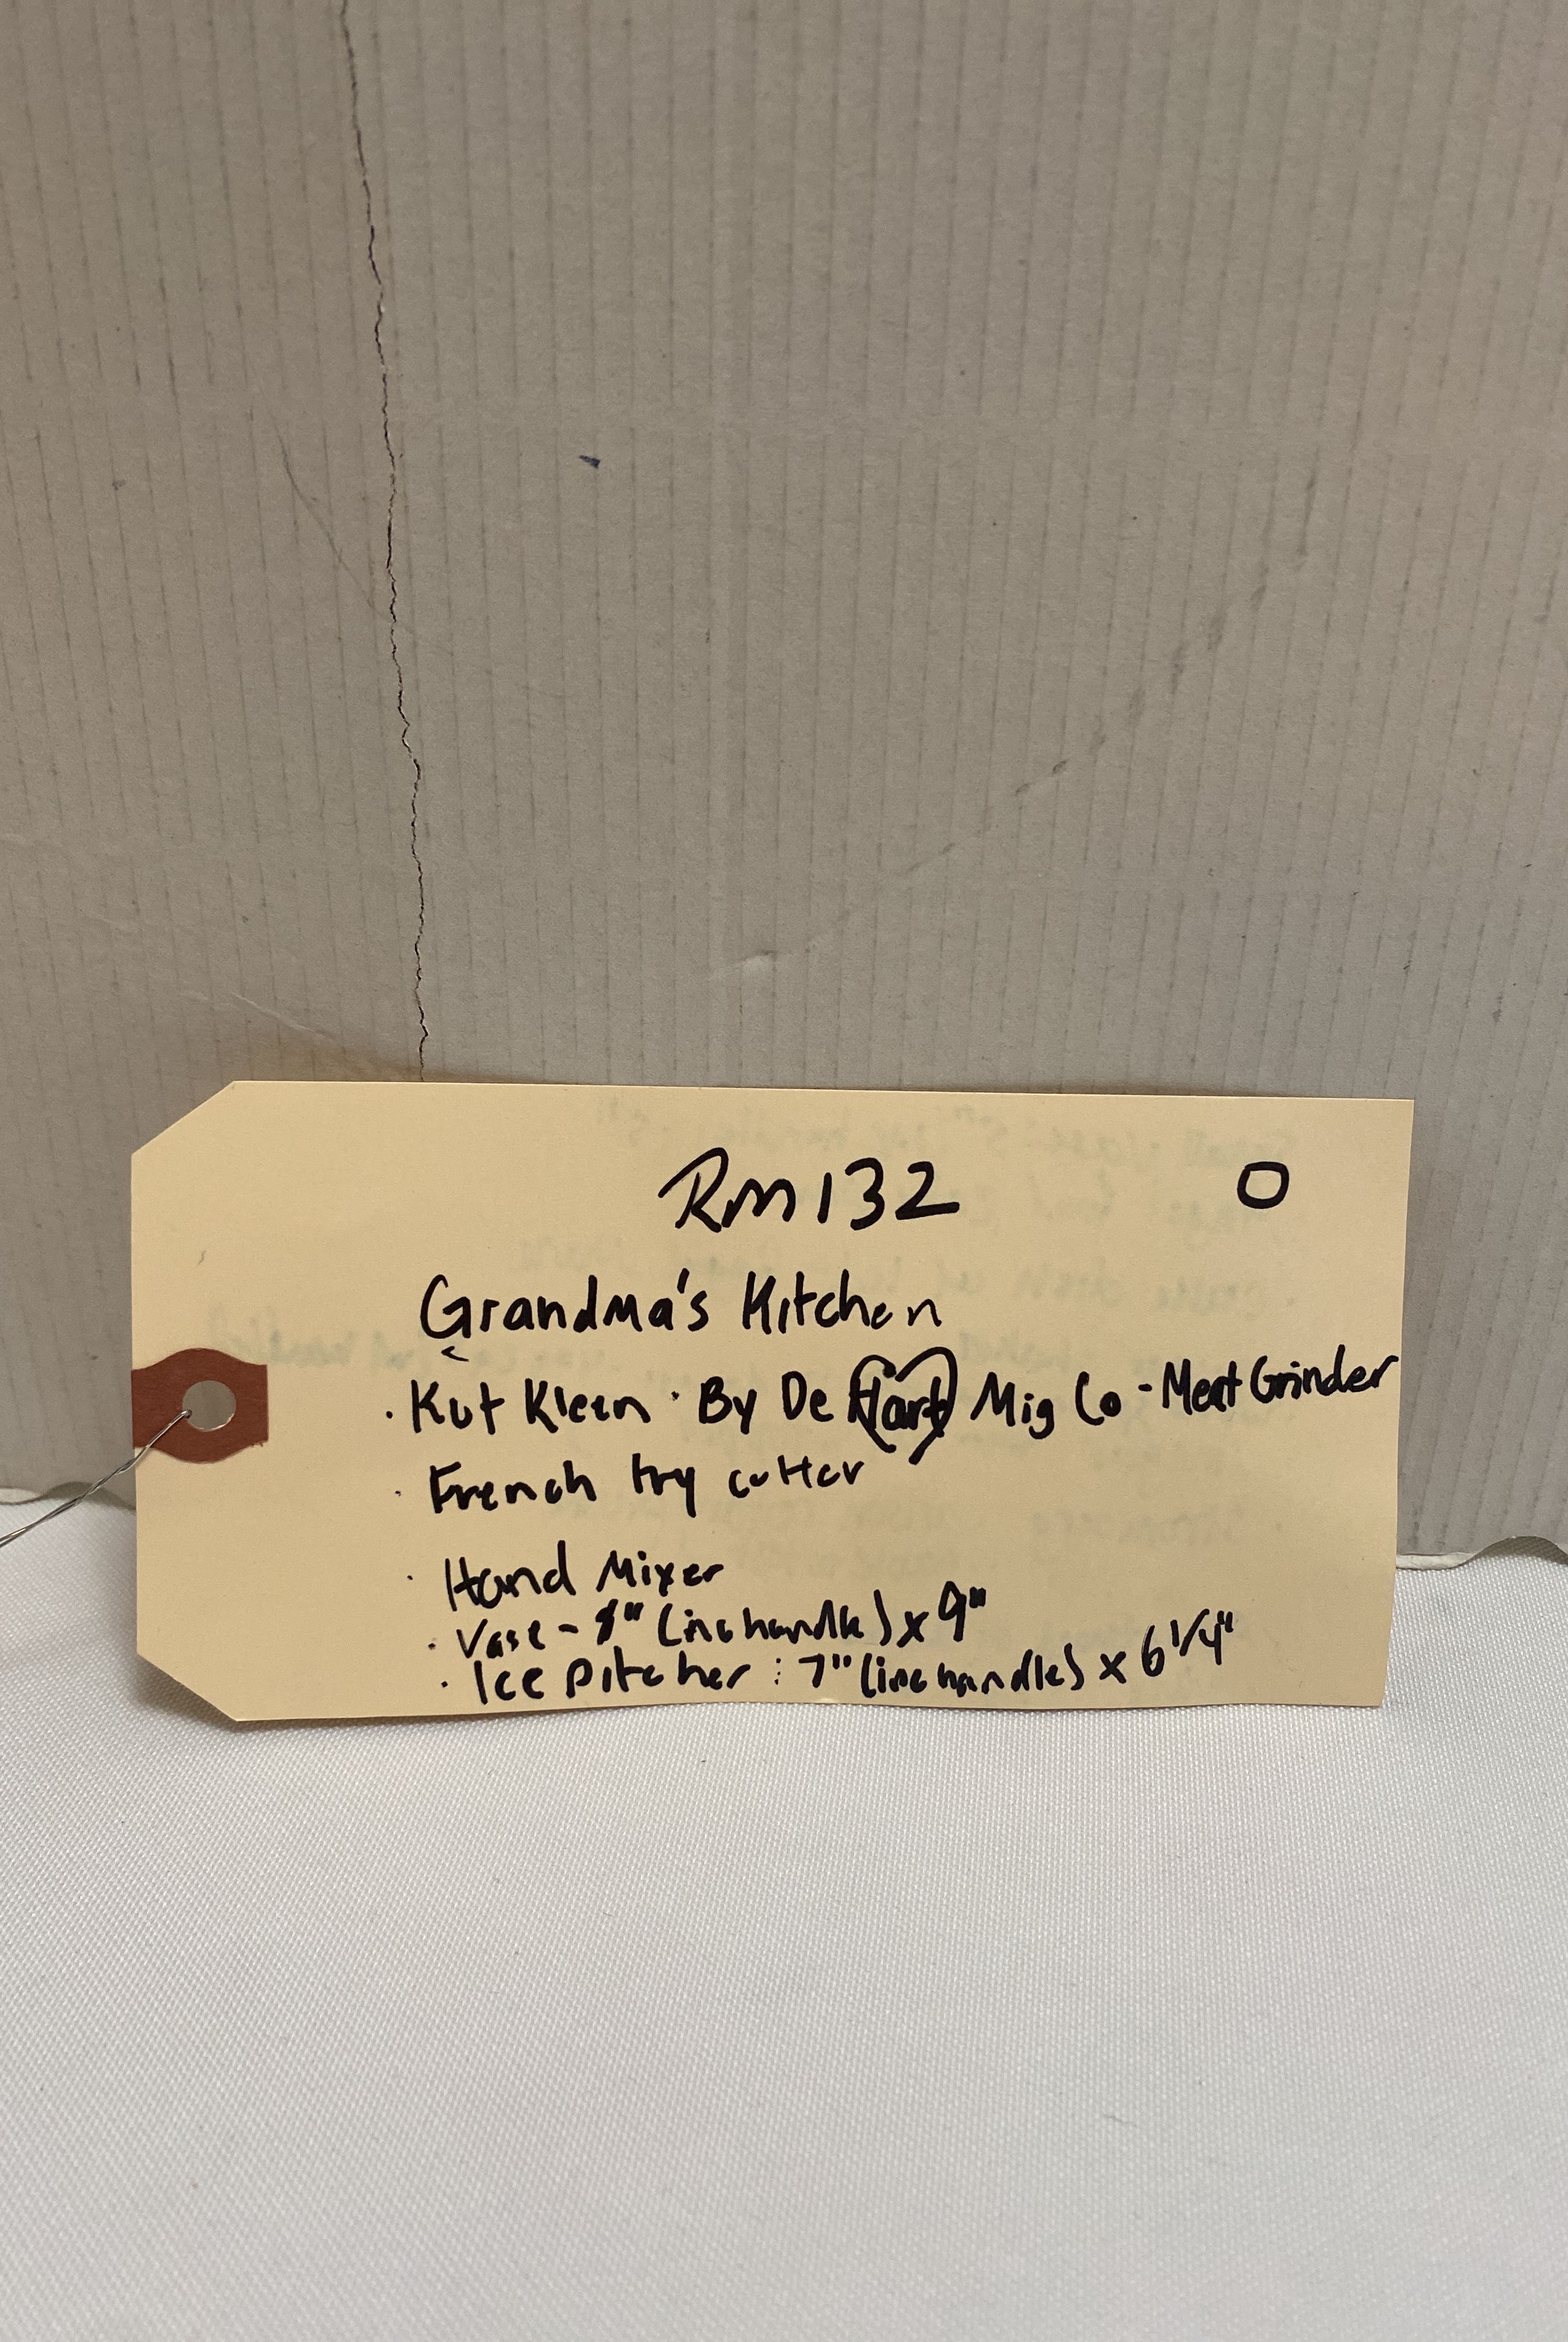 Rm132 O
Grandma's Kitchen
· Kut Kleen · By De Hart Mig Co - Meat Grinder
· French fry cutter
· Hand Mixer
· Vase - 8" (inc handle) x 9"
· Ice pitcher : 7" (inc handle) x 6 1/4"